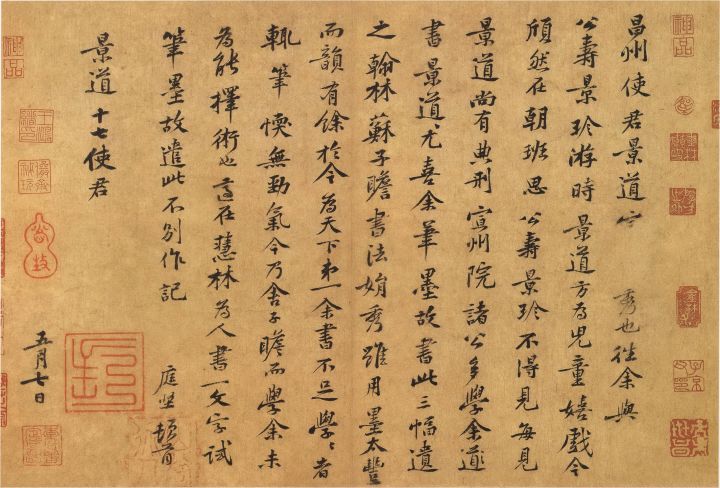 昌州使君景道宗秀也往余與
公壽景珍游時景道方為兒童嬉戲今
頎然在朝班思公壽景珍不得見每見
景道尚有典刑宣州院諸公多學余
書景道尤喜余筆墨故書此三幅遺
之翰林蘇子瞻書法娟秀雖用墨太豐
而韻有餘於今為天下第一余書不足學學者
輒筆愞無勁氣今乃舍子瞻而學余未
為能擇術也適在慧林為人書一文字試
筆墨故遣此不別作記
庭堅頓首
景道十七使君
五月七日
神品
神品